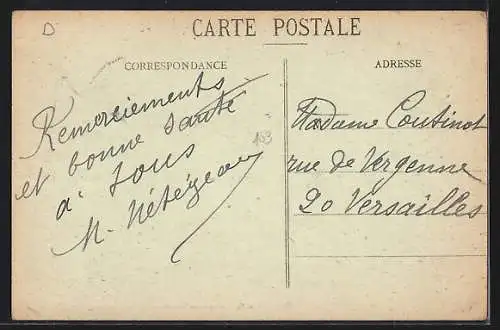 D
CARTE POSTALE
CORRESPONDANCE
ADRESSE
Remerciements
et bonne santé
à tous
M.
153
Madame Coutinot
rue de Vergenne
20 Versailles